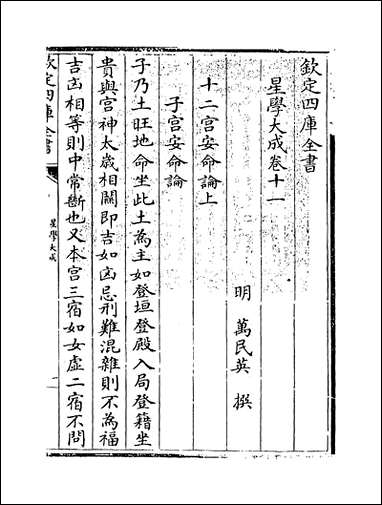 欽定四庫全書
星學大成卷十一
明 萬民英 撰
十二宮安命論上
子宮安命論
子乃土旺地命坐此土為主如登垣登殿入局登籍坐
貴與宮神太歲相關即吉如凶忌刑難混雜則不為福
吉凶相等則中常斷也又本宮三宿如女虛二宿不問
欽定四庫全書
星學大成